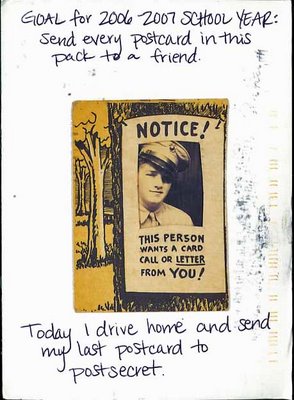 GOAL for 2006-2007 SCHOOL YEAR:
send every postcard in this
pack to a friend.
NOTICE!
THIS PERSON
WANTS A CARD
CALL OR LETTER
FROM YOU!
Today I drive home and send
my last postcard to
postsecret.